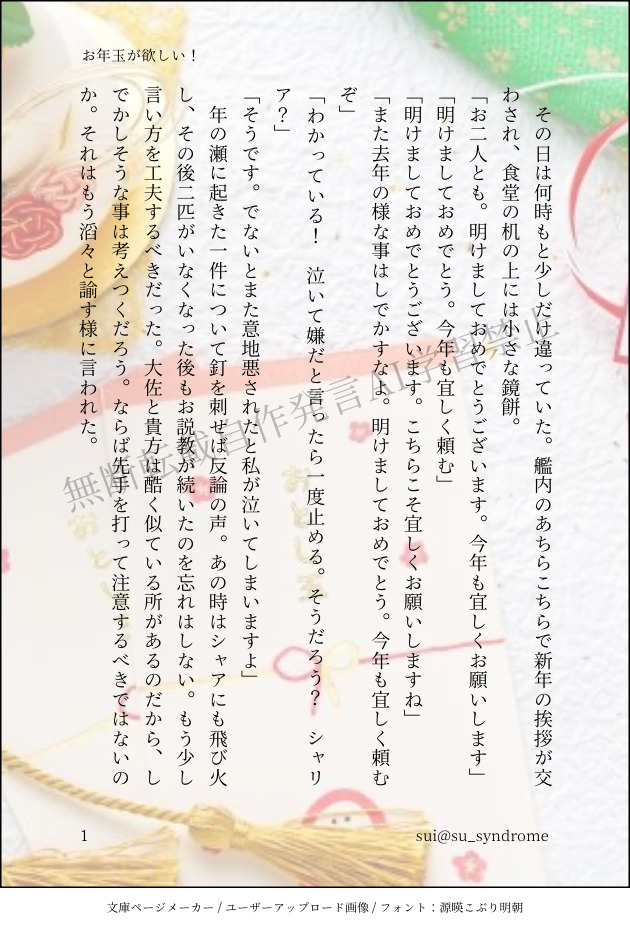 お年玉が欲しい！
　その日は何時もと少しだけ違っていた。艦内のあちらこちらで新年の挨拶が交
わされ、食堂の机の上には小さな鏡餅。
「お二人とも。明けましておめでとうございます。今年も宜しくお願いします」
「明けましておめでとう。今年も宜しく頼む」
「明けましておめでとうございます。こちらこそ宜しくお願いしますね」
「また去年の様な事はしでかすなよ。明けましておめでとう。今年も宜しく頼む
ぞ」
「わかっている！　泣いて嫌だと言ったら一度止める。そうだろう？　シャリ
ア？」
「そうです。でないとまた意地悪されたと私が泣いてしまいますよ」
　年の瀬に起きた一件について釘を刺せば反論の声。あの時はシャアにも飛び火
し、その後二匹がいなくなった後もお説教が続いたのを忘れはしない。もう少し
言い方を工夫するべきだった。大佐と貴方は酷く似ている所があるのだから、し
でかしそうな事は考えつくだろう。ならば先手を打って注意するべきではないの
か。それはもう滔々と諭す様に言われた。
無断転載自作発言AI学習禁止
おとし玉
おとし
1
sui@su_syndrome
文庫ページメーカー / ユーザーアップロード画像 / フォント：源暎こぶり明朝